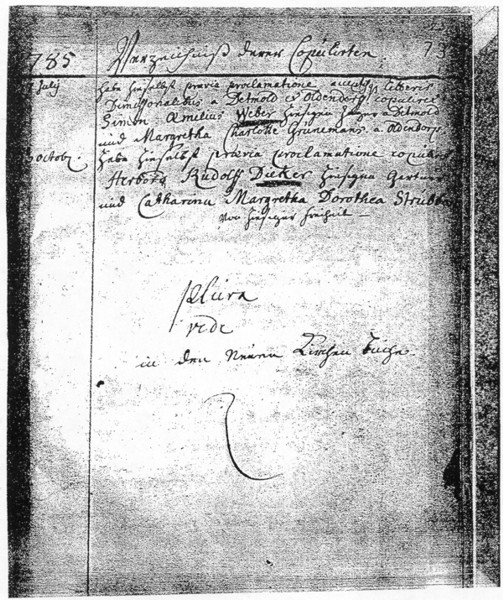 785 Verzeichniß derer Copulirten, 73
July habe hieselbst prævia proclamatione acceptis literis
Dimissorialibus a Detmold & Oldendorf copuliret
Simon Æmelius Weber a Detmold
und Margretha Charlotte Grünemans a Oldendorp.
octobr. habe hieselbst prævia proclamatione copuliret
Herbord Rudolff Dieker
und Catharina Margretha Dorothea Strübb
von hiesiger Freiheit —
plura
vide
in den Neüen Kirchen Buche.